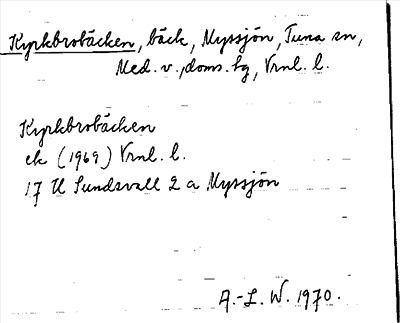 Kyrkbrobäcken, bäck, Myssjön, Tuna sn,
Med. v., doms. hg, Vrnl. l.
Kyrkbrobäcken
ek (1969) Vrnl. l.
17 H Sundsvall 2 a Myssjön
A.-L. W. 1970.